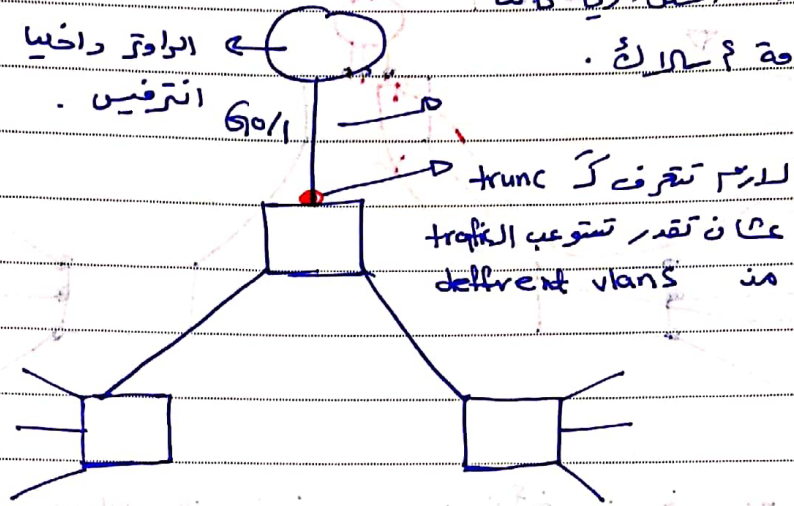 الراوتر داخليا
انترفيس .
G0/1
لازم تتعرف كـ trunc
عشان تقدر تستوعب الـ trafic
من deffrent vlans